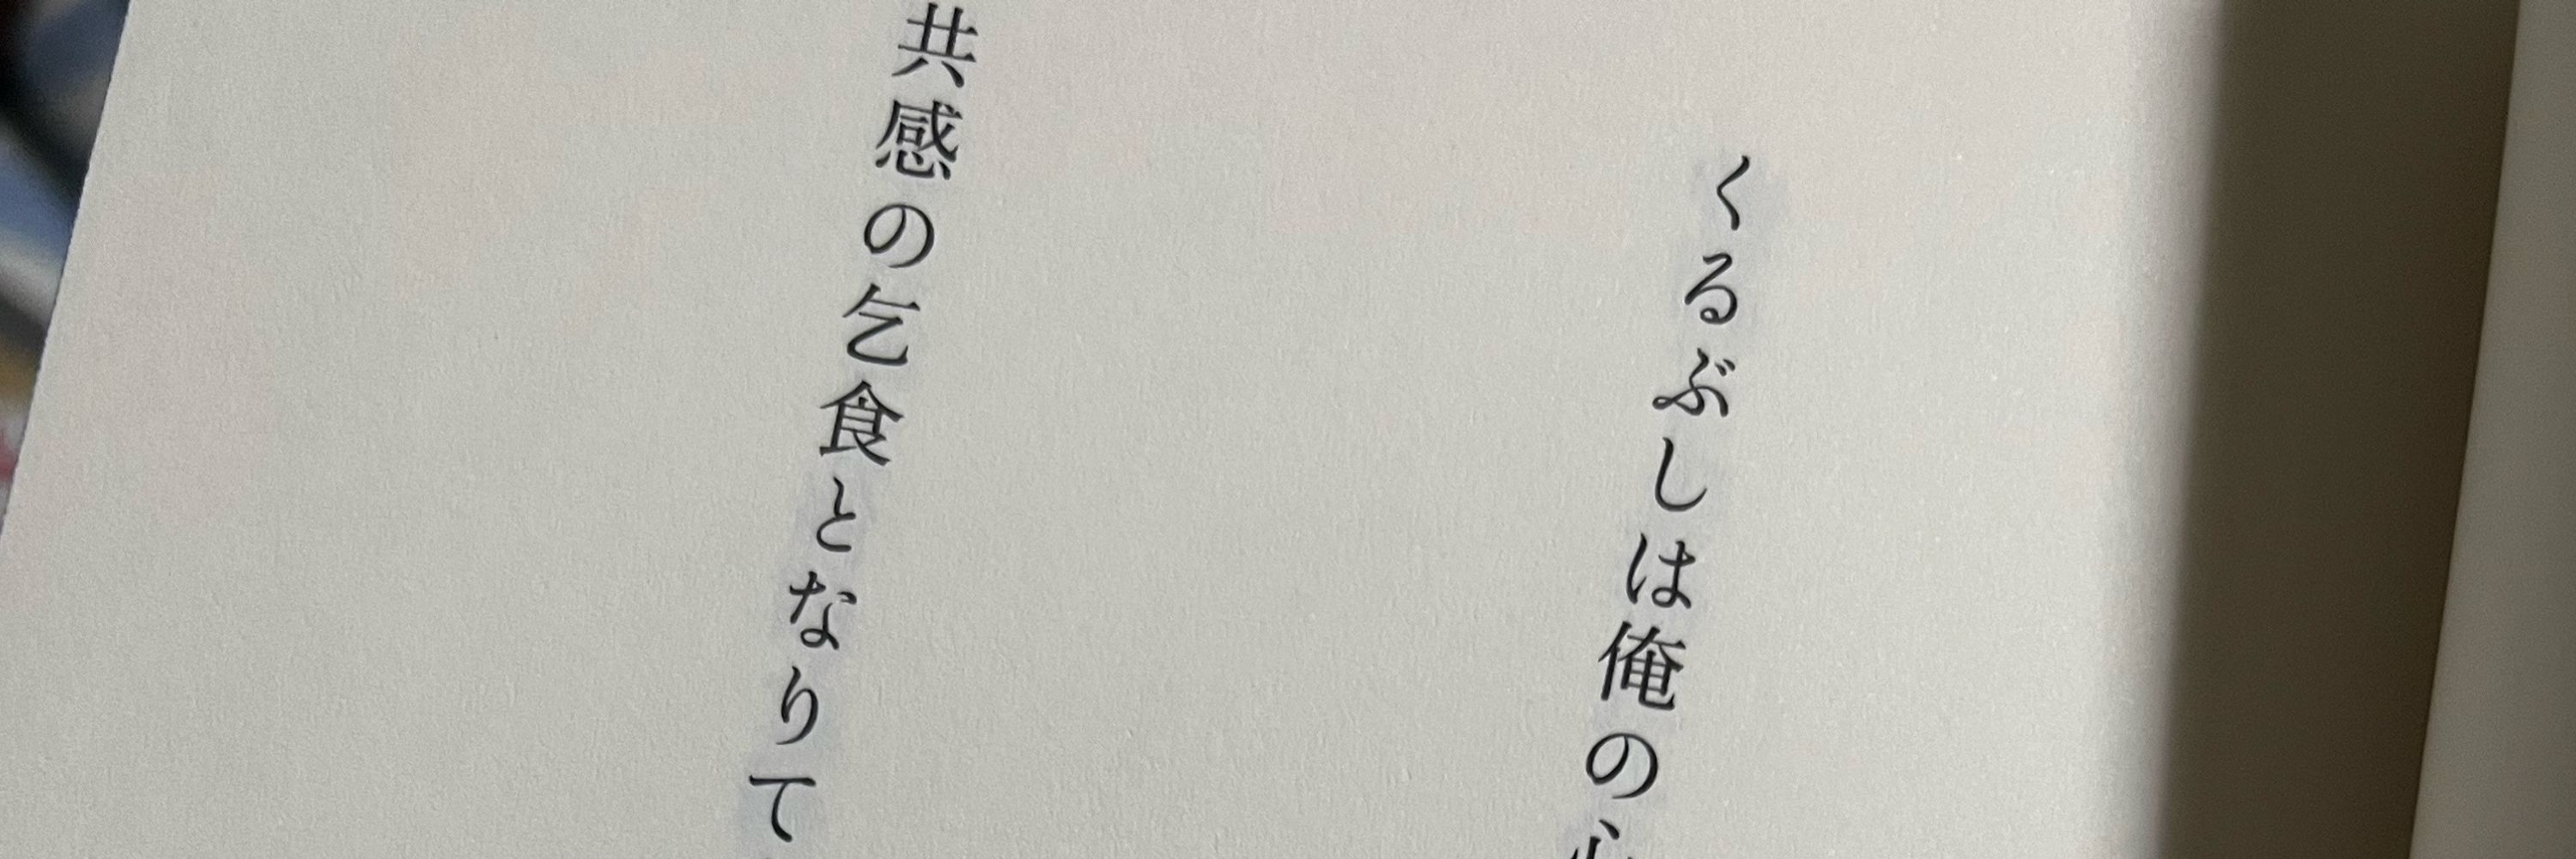 くるぶしは俺の心
共感の乞食となりて